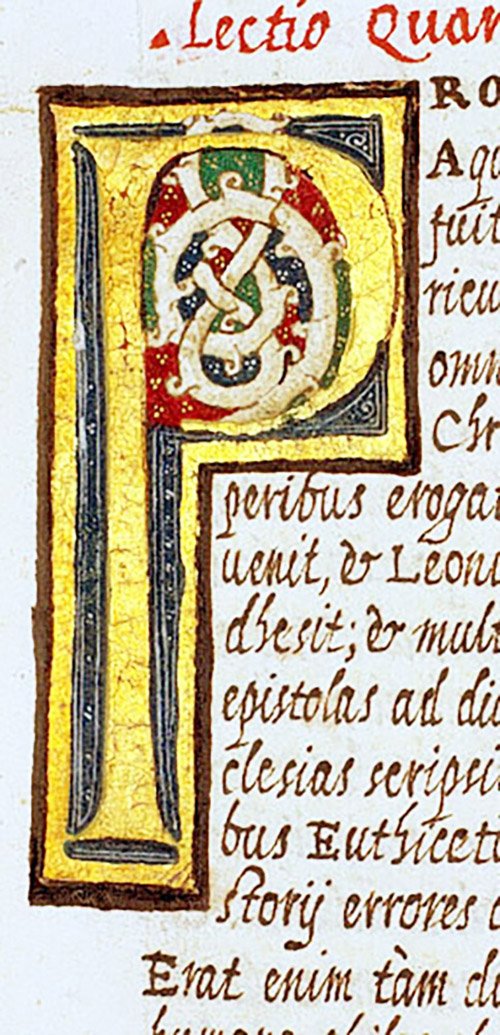 Lectio Quar
P RO
Aqu
fuit
ricu
omn
Chr
peribus erogar
uenit, & Leoni
dhesit; & mult
epistolas ad di
clesias scripsi
bus Euthicet
storij errores
Erat enim tàm di